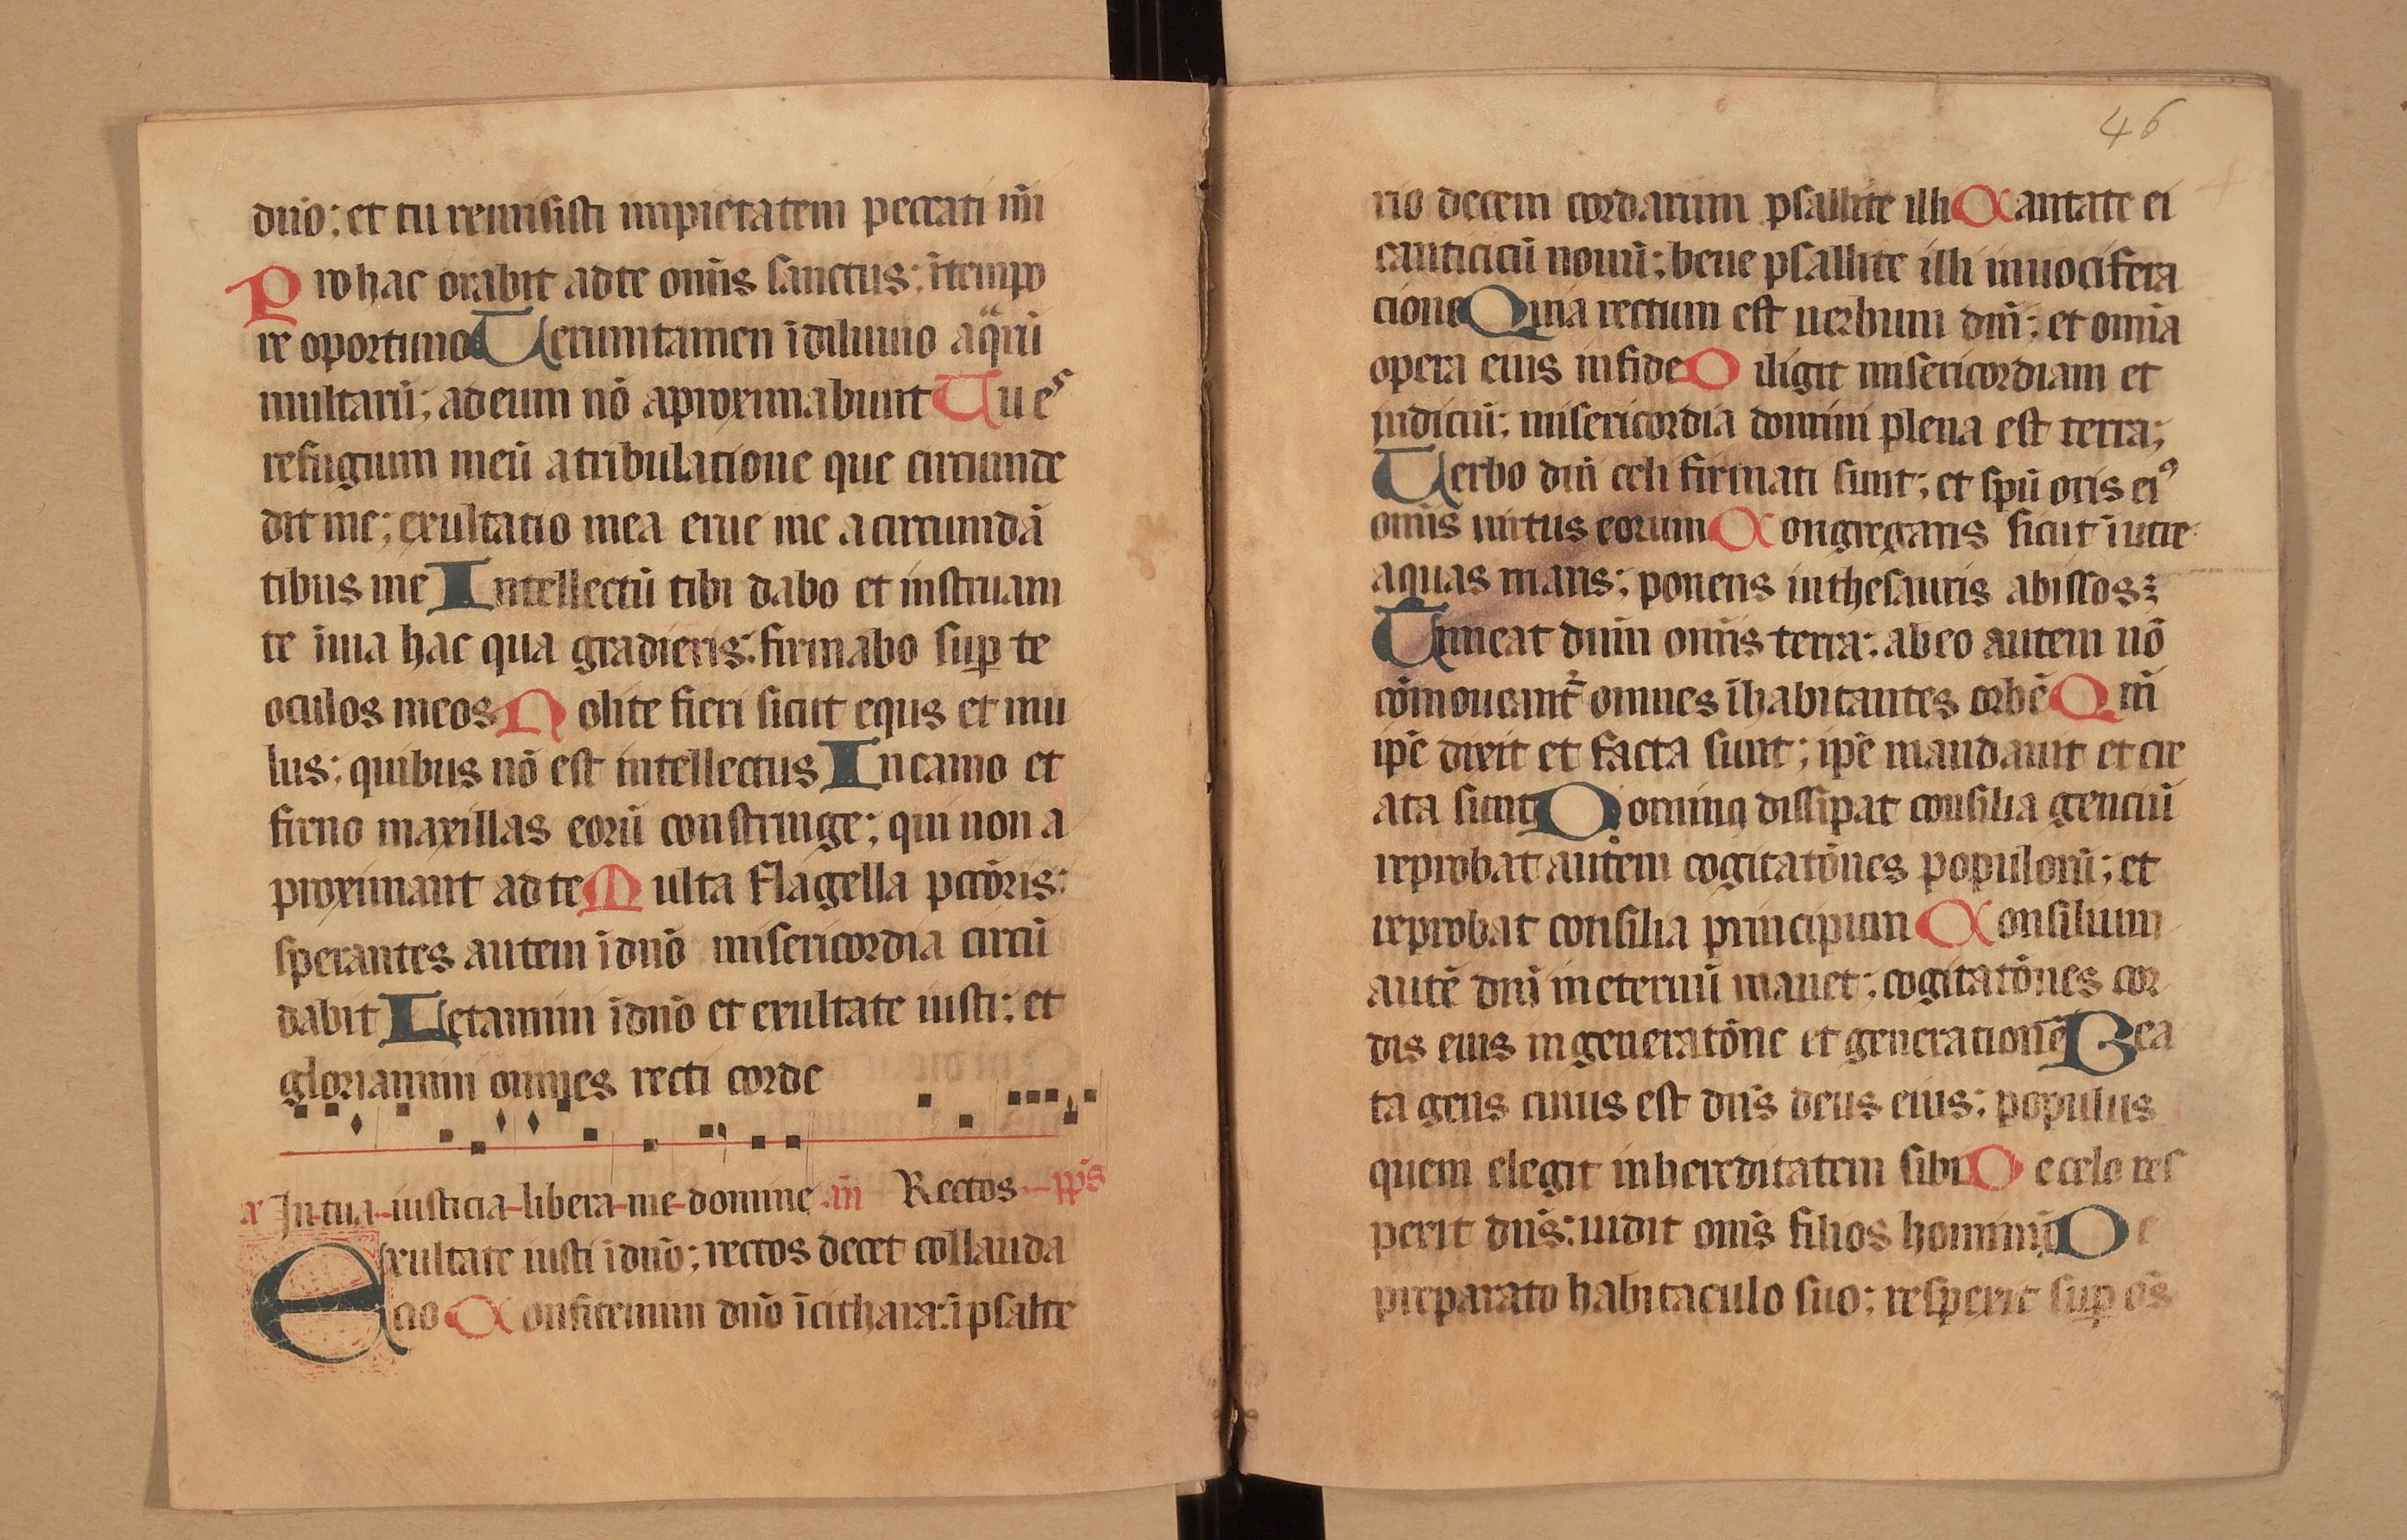 dnō; et tu remisisti impietatem peccati mī
Pro hac orabit ad te om̄is sanctus: ītempo
re oportuno Uerumtamen īdiluuio aqͣrū
multarū; ad eum nō aproximabunt Tu es
refugium meū a tribulatione que circunde
dit me; exultatio mea erue me a circumdā
tibus me Intellectū tibi dabo et instruam
te īuia hac qua gradieris: firmabo suꝑ te
oculos meos Nolite fieri sicut equs et mu
lus; quibus nō est intellectus Incamo et
firno maxillas eorū constringe; qui non a
proximant ad te Multa flagella pccōris:
sperantes autem īdnō misericordia circū
dabit Letamini īdnō et exultate iusti; et
gloriamini omnes recti corde
a In tua iusticia libera me domine .añ Rectos pp̄s
Exultate iusti īdnō; rectos decet collauda
cio Confitemini dnō īcithara: īpsalte
46
rio decem cordarum psallite illi Cantate ei
canticicū nouū; bene psallite illi inuocifera
cione Quia rectum est uerbum dnī; et omīa
opera eius infide Diligit misericordiam et
iudiciū; misericordia domini plena est terra;
Uerbo dnī celi firmati sunt; et spū oris eiꝰ
omīs uirtus eorum Congregans sicut īutre
aquas maris; ponens inthesauris abissos;
Timeat dnm̄ omīs terra; abeo autem nō
cōmoueant᷑ omnes īhabitantes orbē Qm̄
ipē dixit et facta sunt; ipē mandauit et cre
ata sunt Dominꝰ dissipat consilia genciū
reprobat autem cogitatōnes populorū; et
reprobat consilia principum Consilium
autē dnī ineternū manet; cogitatōnes cor
dis eius in generatōne et generationē Bea
ta gens cuius est dnś deus eius; populus
quem elegit inhereditatem sibi De celo res
perit dnś; uidit omīs filios hominū De
preparato habitaculo suo; resperit suꝑ oś